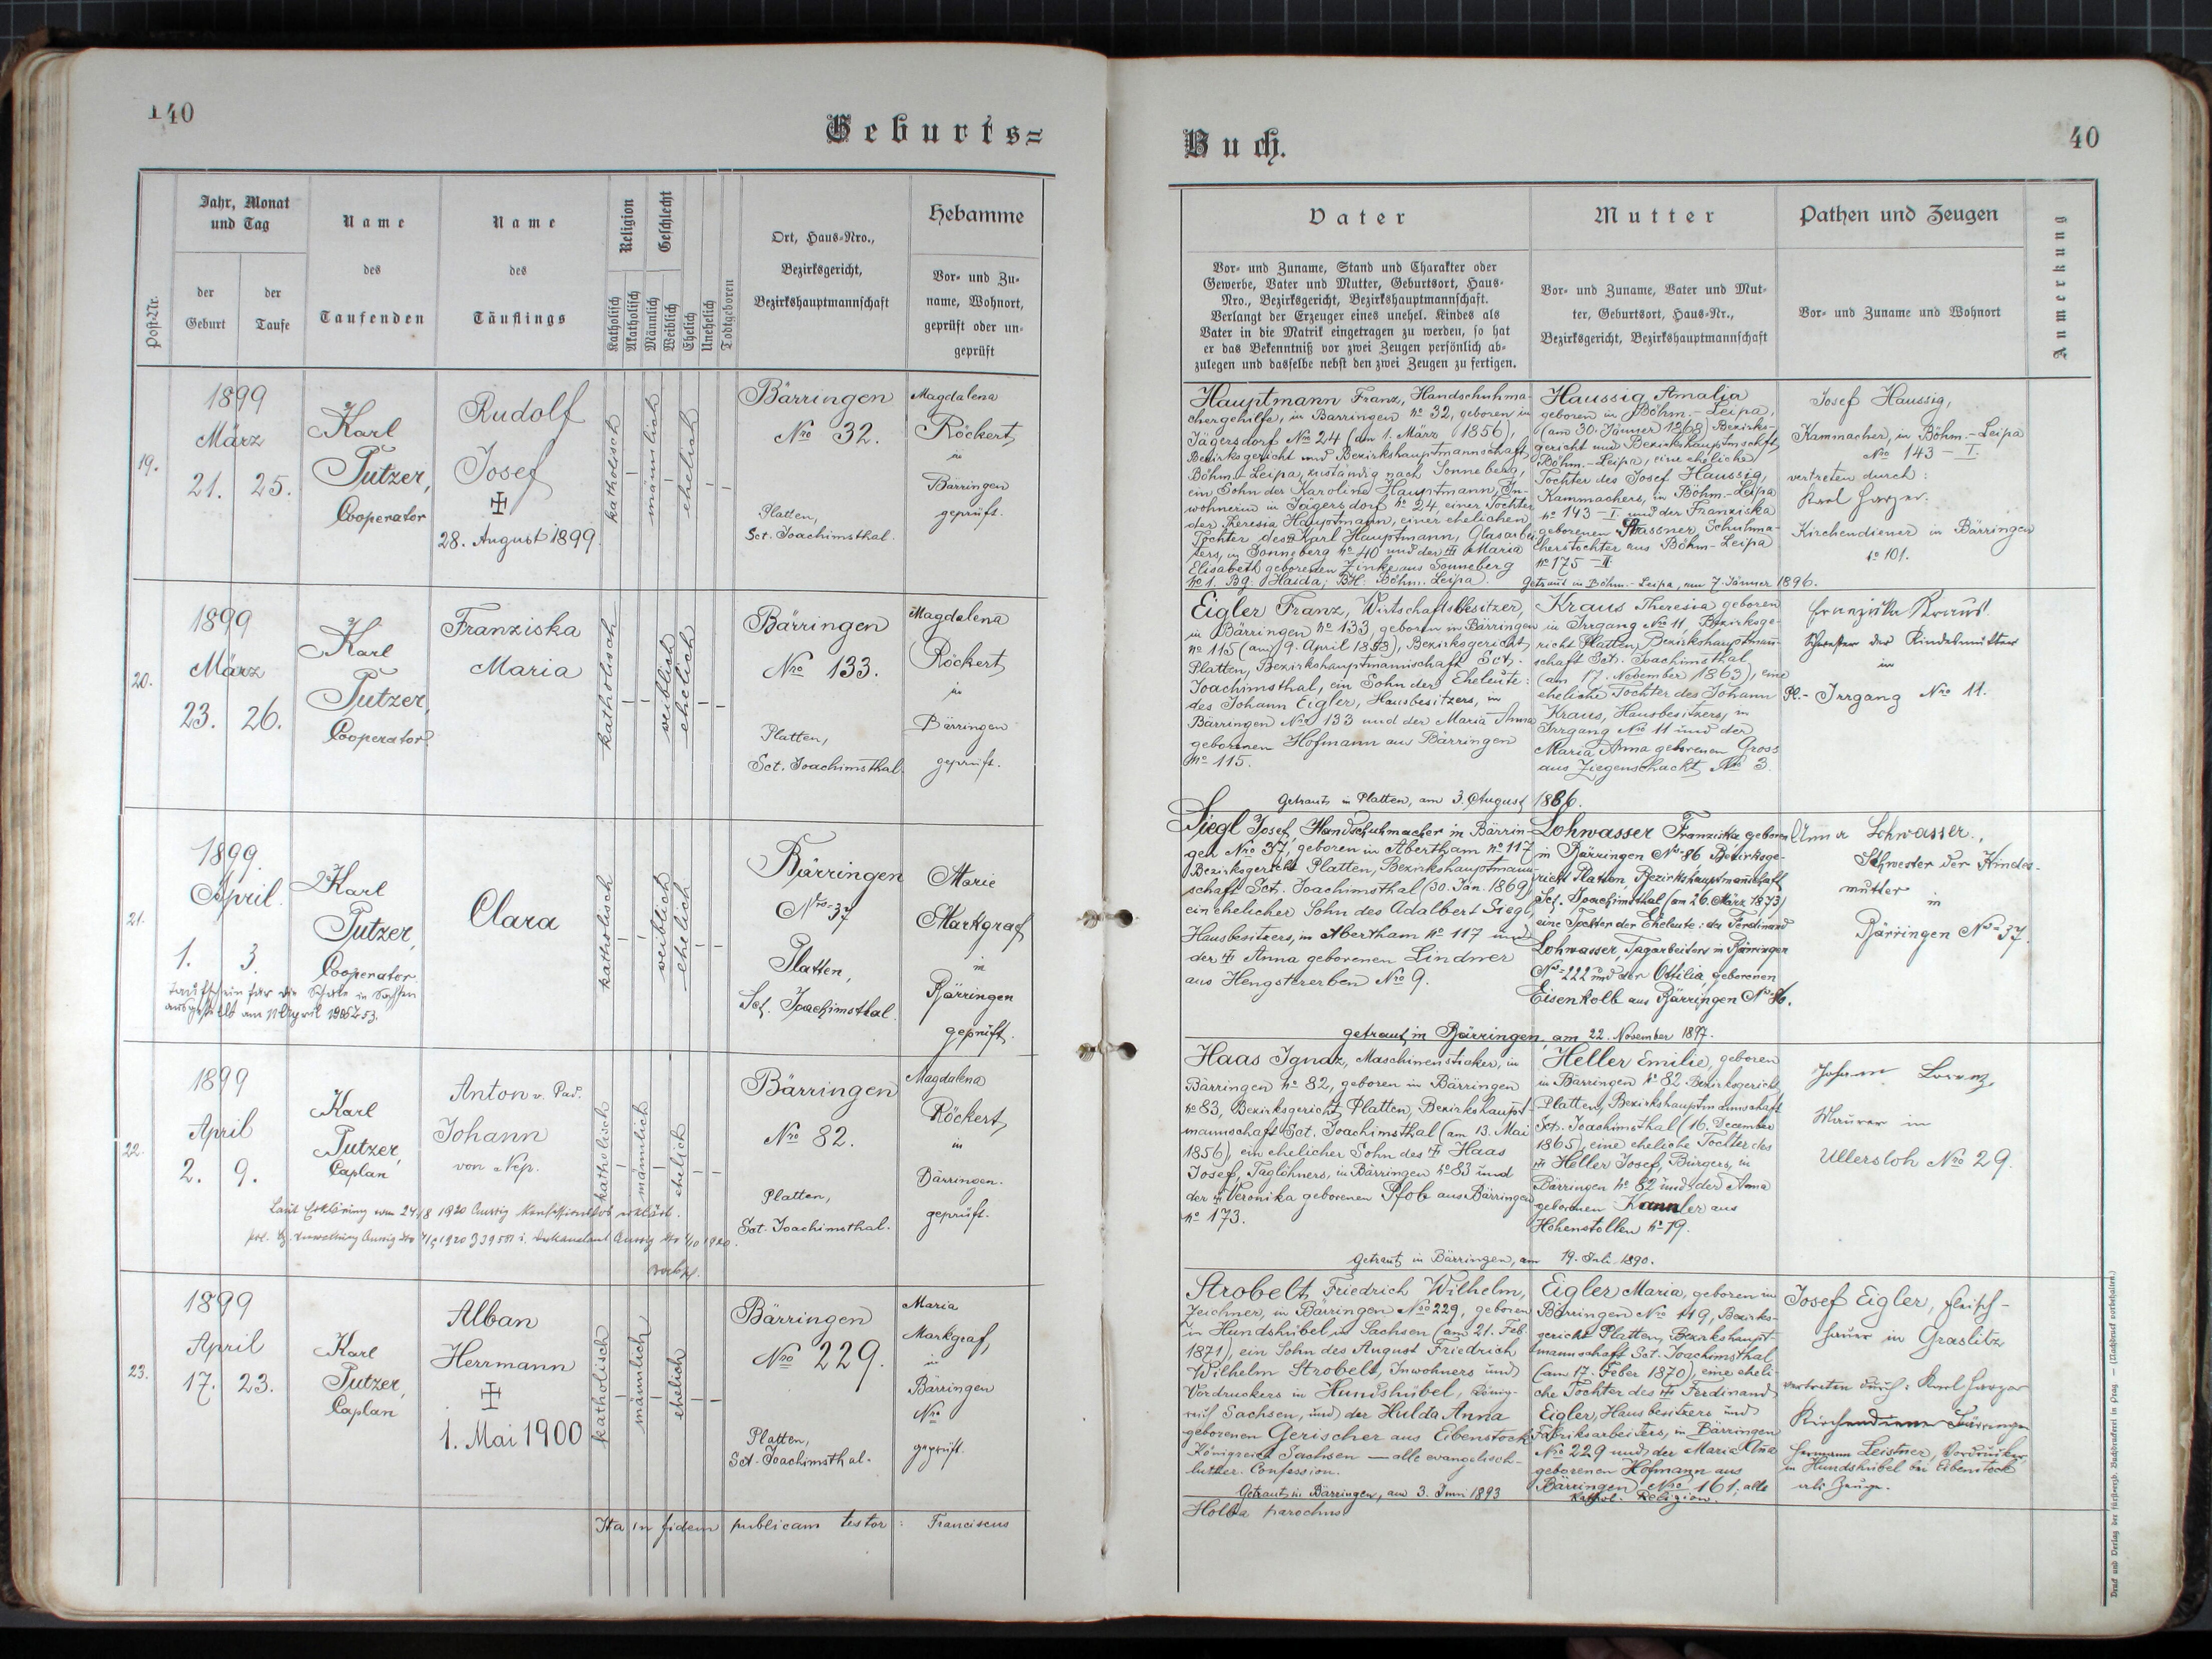 140
Geburts=
Jahr, Monat
und Tag
Name
Name
Religion
Geschlecht
Ort, Haus-Nro.,
Hebamme
Post-Nr.
der
Geburt
der
Taufe
des
Taufenden
des
Täuflings
Katholisch
Akatholisch
Männlich
Weiblich
Ehelich
Unehelich
Todtgeboren
Bezirksgericht,
Bezirkshauptmannschaft
Vor- und Zu-
name, Wohnort,
geprüft oder un-
geprüft
19.
1899
März
21. 25.
Karl
Putzer,
Cooperator
Rudolf
Josef
28. August 1899
katholisch
männlich
ehelich
Bärringen
Nro 32.
Platten,
Sct. Joachimsthal.
Magdalena
Röckert
in
Bärringen
geprüft.
20.
1899
März
23. 26.
Karl
Putzer,
Cooperator
Franziska
Maria
katholisch
weiblich
ehelich
Bärringen
Nro 133.
Platten,
Sct. Joachimsthal.
Magdalena
Röckert
in
Bärringen
geprüft.
21.
1899.
April.
1. 3.
Karl
Putzer,
Cooperator.
Taufschein für die Schule in Sachsen
ausgestellt am 11 April 1906 Z 53.
Clara
katholisch
weiblich
ehelich
Bärringen
Nro 37
Platten,
Sct. Joachimsthal.
Marie
Markgraf
in
Bärringen
geprüft.
22.
1899
April
2. 9.
Karl
Putzer,
Caplan
Anton v. Pad.
Johann
von Nep.
katholisch
männlich
ehelich
Bärringen
Nro 82.
Platten,
Sct. Joachimsthal.
Magdalena
Röckert
in
Bärringen.
geprüft.
Laut Erklärung vom 24/8 1920 Aussig konfessionslos erklärt.
23.
1899
April
17. 23.
Karl
Putzer,
Caplan
Alban
Herrmann
1. Mai 1900
katholisch
männlich
ehelich
Bärringen
Nro 229.
Platten,
Sct. Joachimsthal.
Maria
Markgraf,
in
Bärringen
Nro
geprüft.
Ita in fidem publicam testor: Franciscus
Buch.
40
Vater
Mutter
Pathen und Zeugen
Anmerkung
Vor- und Zuname, Stand und Charakter oder
Gewerbe, Vater und Mutter, Geburtsort, Haus-
Nro., Bezirksgericht, Bezirkshauptmannschaft.
Verlangt der Erzeuger eines unehel. Kindes als
Vater in die Matrik eingetragen zu werden, so hat
er das Bekenntniß vor zwei Zeugen persönlich ab-
zulegen und dasselbe nebst den zwei Zeugen zu fertigen.
Vor- und Zuname, Vater und Mut-
ter, Geburtsort, Haus-Nr.,
Bezirksgericht, Bezirkshauptmannschaft
Vor- und Zuname und Wohnort
Hauptmann Franz, Handschuhma-
chergehilfe, in Bärringen No 32, geboren in
Jägersdorf No 24 (am 1. März 1856),
Bezirksgericht und Bezirkshauptmannschaft
Böhm.-Leipa, zuständig nach Sonneberg,
ein Sohn der Karolina Hauptmann, In-
wohnerin in Jägersdorf No 24, einer Tochter
der Theresia Hauptmann, einer ehelichen
Tochter des Karl Hauptmann, Glasarbei-
ters, in Sonneberg No 40 und der Maria
Elisabeth geborenen Zinke aus Sonneberg
No 1. Bg: Haida, BH: Böhm. Leipa).
Haussig Amalia
geboren in Böhm.-Leipa,
(am 30. Jänner 1868) Bezirks-
gericht und Bezirkshauptmschft
Böhm.-Leipa, eine eheliche
Tochter des Josef Haussig,
Kammachers, in Böhm.-Leipa
No 143-I. und der Franziska
geborenen Strassner, Schuhma-
cherstochter aus Böhm-Leipa
No 175-II.
Getraut in Böhm.-Leipa, am 7. Jänner 1896.
Josef Haussig,
Kammacher, in Böhm.-Leipa
No 143-I.
vertreten durch:
Karl Harzer.
Kirchendiener in Bärringen
No 101.
Eigler Franz, Wirtschaftsbesitzer,
in Bärringen No 133, geboren in Bärringen
No 115 (am 9. April 1853), Bezirksgericht
Platten, Bezirkshauptmannschaft Sct.
Joachimsthal, ein Sohn der Eheleute:
des Johann Eigler, Hausbesitzers, in
Bärringen Nro 133 und der Maria Anna
geborenen Hofmann aus Bärringen
No 115.
Kraus Theresia geboren
in Irrgang No 11, Bezirksge-
richt Platten, Bezirkshauptmann
schaft Sct. Joachimsthal
(am 17. November 1863), eine
eheliche Tochter des Johann
Kraus, Hausbesitzers, in
Irrgang No 11 und der
Maria Anna geborenen Gross
aus Ziegenschacht No 3.
Getraut in Platten, am 3. August 1886.
Franziska Kraus
Schwester der Kindesmutter
in
Pl.-Irrgang Nro 11.
Siegl Josef, Handschuhmacher in Bärrin-
gen Nro 37, geboren in Abertham No 117
Bezirksgericht Platten, Bezirkshauptmann-
schaft Sct. Joachimsthal (30. Jän. 1869)
ein ehelicher Sohn des Adalbert Siegl,
Hausbesitzers, in Abertham No 117 und
der Anna geborenen Lindner
aus Hengstererben No 9.
Lohwasser Franziska geboren
in Bärringen No 86 Bezirksge-
richt Platten, Bezirkshauptmannschaft
Sct. Joachimsthal (am 26. März 1873)
eine Tochter der Eheleute: des Ferdinand
Lohwasser, Tagarbeiters in Bärringen
No 222 und der Ottilia, geborenen
Eisenkolb aus Bärringen No 86.
getraut in Bärringen, am 22. November 1897.
Anna Lohwasser,
Schwester der Kindes-
mutter
in
Bärringen No 37.
Haas Ignaz, Maschinensticker, in
Bärringen No 82, geboren in Bärringen
No 83, Bezirksgericht Platten, Bezirkshaupt-
mannschaft Sct. Joachimsthal (am 13. Mai
1856), ein ehelicher Sohn des Haas
Josef, Taglöhners, in Bärringen No 83 und
der Veronika geborenen Pfob aus Bärringen
No 173.
Heller Emilie, geboren
in Bärringen No 82 Bezirksgericht
Platten, Bezirkshauptmannschaft
Sct. Joachimsthal (16. December
1865), eine eheliche Tochter des
Heller Josef, Bürgers, in
Bärringen No 82 und der Anna
geborenen Kannler aus
Hohenstollen No 79.
Getraut in Bärringen, am 19. Juli 1890.
Johann Lorenz,
Maurer in
Ullersloh Nro 29.
Strobelt Friedrich Wilhelm,
Zeichner, in Bärringen No 229, geboren
in Hundshübel in Sachsen (am 21. Feb.
1871), ein Sohn des August Friedrich
Wilhelm Strobelt, Inwohners und
Vordruckers in Hundshübel, König-
reich Sachsen, und der Hulda Anna
geborenen Gerischer aus Eibenstock
Königreich Sachsen — alle evangelisch-
luther. Confession.
Getraut in Bärringen, am 3. Juni 1893
Eigler Maria, geboren in
Bärringen No 119, Bezirks-
gericht Platten, Bezirkshaupt-
mannschaft Sct. Joachimsthal
(am 17. Feber 1870), eine eheli-
che Tochter des Ferdinand
Eigler, Hausbesitzers und
Fabriksarbeiters, in Bärringen
No 229 und der Maria Aña
geborenen Hofmann aus
Bärringen No 161, alle
kathol. Religion.
Josef Eigler, Fleisch-
hauer in Graslitz
vertreten durch: Karl Harzer
Kirchendiener Bärringen
Hermann Leistner, Vordrucker
in Hundshübel bei Eibenstock
als Zeuge.
Holba parochus
Druck und Verlag der fürsterzb. Buchdruckerei in Prag. — (Nachdruck vorbehalten.)